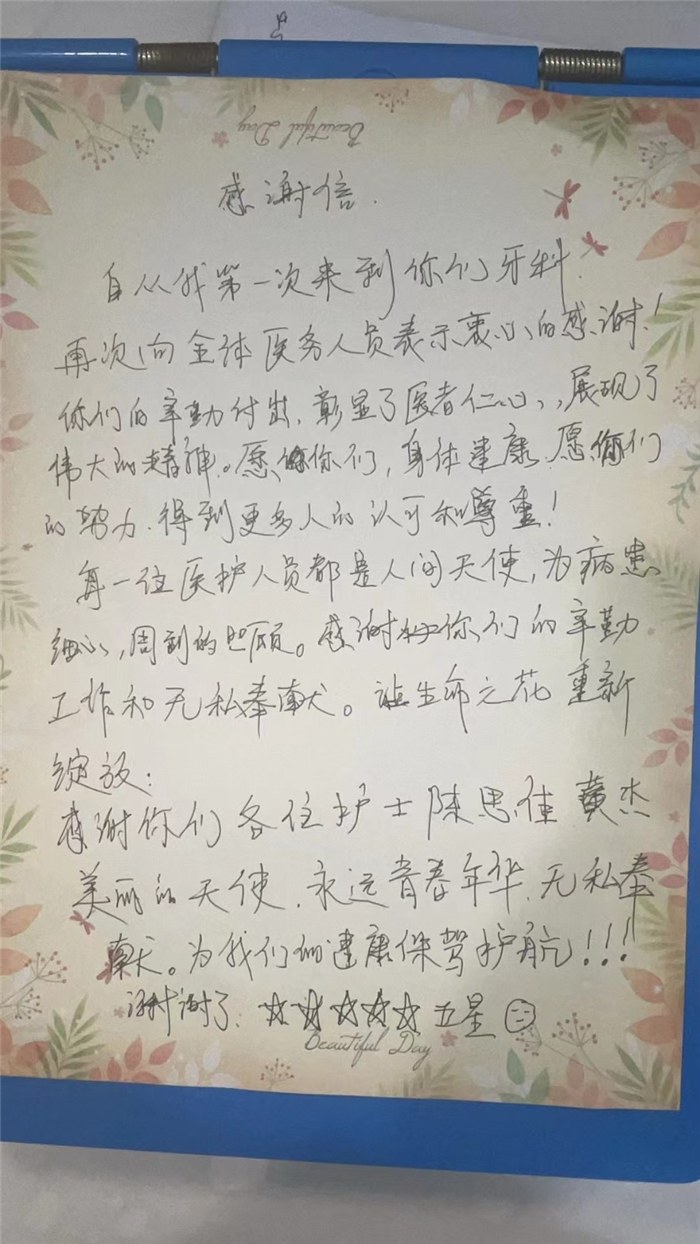 Beautiful Day
感谢信.
自从我第一次来到你们牙科.
再次向全体医务人员表示衷心的感谢!
你们的辛勤付出,彰显了医者仁心,,展现了
伟大的精神。愿你们,身体健康.愿你们
的努力.得到更多人的认可和尊重!
每一位医护人员都是人间天使,为病患
细心,周到的照顾。感谢你们的辛勤
工作和无私奉献。让生命之花重新
绽放:
感谢你们各位护士陈思佳 黄杰
美丽的天使.永远青春年华.无私奉
献。为我们的健康保驾护航!!!
谢谢了.☆☆☆☆☆五星
Beautiful Day